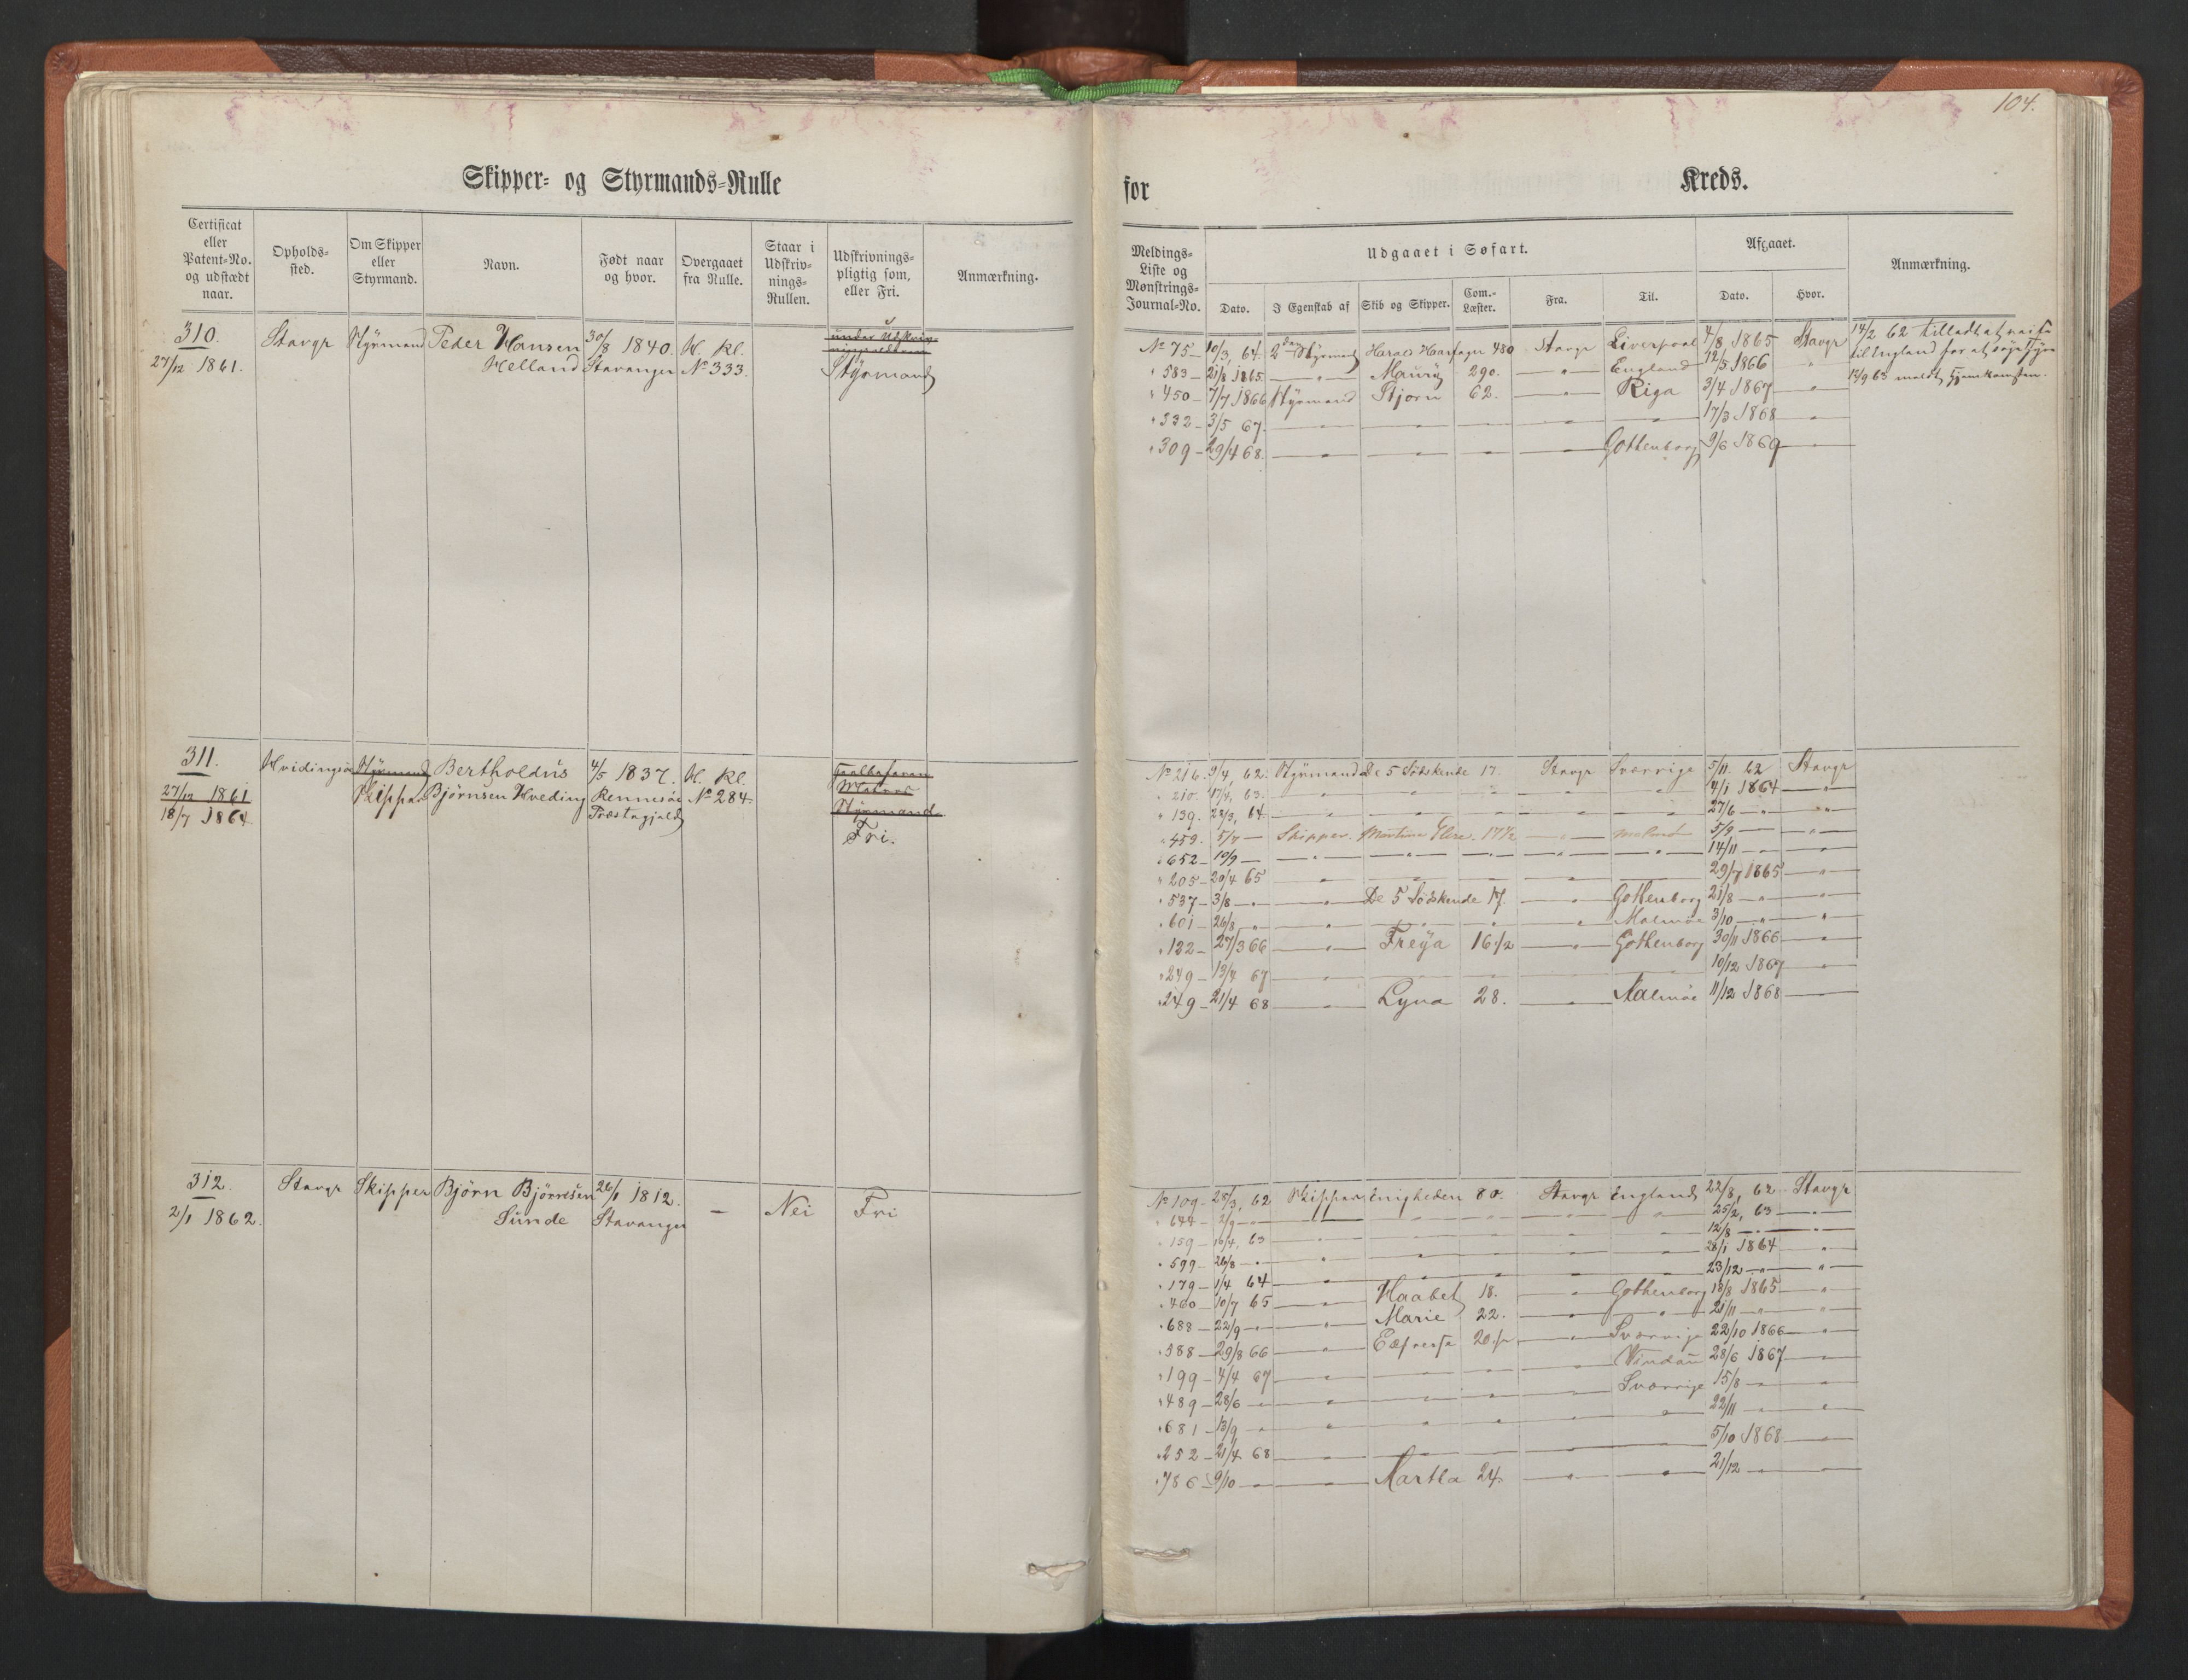 104.
Skipper- og Styrmands-Rulle
for Kreds.
Certificat eller Patent-No. og udstædt naar.
Opholds-sted.
Om Skipper eller Styrmand.
Navn.
Født naar og hvor.
Overgaaet fra Rulle.
Staar i Udskriv-nings-Rullen.
Udskrivnings-pligtig som, eller Fri.
Anmærkning.
Meldings-Liste og Mønstrings-Journal-No.
Udgaaet i Søfart.
Dato.
I Egenskab af
Skib og Skipper.
Com.-Læster.
Fra.
Til.
Afgaaet.
Dato.
Hvor.
Anmærkning.
310. Stavgr Styrmand Peder Hansen 30/8 1840. H. Kl. under Udskriv-
27/12 1861. Helland Stavanger No 333. Styrmand
No 75 - 10/3, 64. 2den Styrmand Harald Haarfager 480 Stavgr Liverpool 4/8 1865 Stavgr
" 583 - 21/8 1865. " Maury 290. " England 12/5 1866 "
" 450 - 7/7 1866 Styrmand Stjorn 62. " Riga 3/4 1867 "
" 332 - 3/5 67. " " " " " 17/3 1868 "
" 309 - 29/4 68. " " " " Gothenborg 9/6 1869 "
14/2 62 tilladt at reise
til England for at søge Hyre
12/9 63 meldt Hjemkomsten.
311. Hvidingsøe Styrmand Bertholdus 4/5 1837. H. Kl.
27/12 1861 Skipper Bjørnsen Hveding Rennesøe No 284.
18/7 1864 Præstegjeld Matros
Styrmand
Fri.
No 216. 9/4, 62. Styrmand De 5 Sødskende 17. Stavgr Sverrige 5/11 62 Stavgr
" 210. 17/4, 63. " " " " " 4/1 1864 "
" 139. 22/3, 64. " " " " " 27/6 " "
" 459. 5/7 - Skipper. Martine Elise. 17 1/2 " 5/9 - "
" 652 - 10/9 - " " " " " 14/11 - "
" 205 - 20/4 65 " 29/7 1865 "
" 537 - 3/8 - " " De 5 Sødskende 17. " Gothenborg 21/8 - " "
" 601 - 26/8 - " " " Malmøe 3/10 - " "
" 122 - 27/3 66 " Freya 16 1/2 " Gothenborg 30/11 1866 "
" 249 - 13/4 67 " 10/12 1867 "
" 249 - 21/4 68 Lyna 28. " Malmøe 11/12 1868
312. Stavgr Skipper Bjørn Bjørnsen 26/1 1812. - Nei Fri
2/1 1862. Sunde Stavanger
No 109. 25/3, 62 Skipper Enigheden 80. Stavgr England 22/8, 62 Stavgr
" 644 - 2/9 - " " " " " 25/2, 63 "
" 159 - 10/4, 63 " " " " " 12/8 - " "
" 599 - 26/8 - " " " " " 28/1 1864 "
" 179 - 1/4 64 " " " " " 23/12 - " "
" 460 - 10/7 65 " Haabet 18. " Gothenborg 18/8 1865 "
" 688 - 22/9 - " " Marie 22. " " 21/11 - " "
" 588 - 29/8 66 " Expresse 20 1/2 " Sverrige 22/10 1866 "
" 199 - 4/4 67 " " " " Vindau 28/6 1867 "
" 489 - 28/6 - " " " " Sverrige 15/8 - " "
" 681 - 13/9 - " " " " " 22/11 - " "
" 252 - 21/4 68 5/10 1868 "
" 786 - 9/10 - " " Martha 24. " " 21/12 - " "